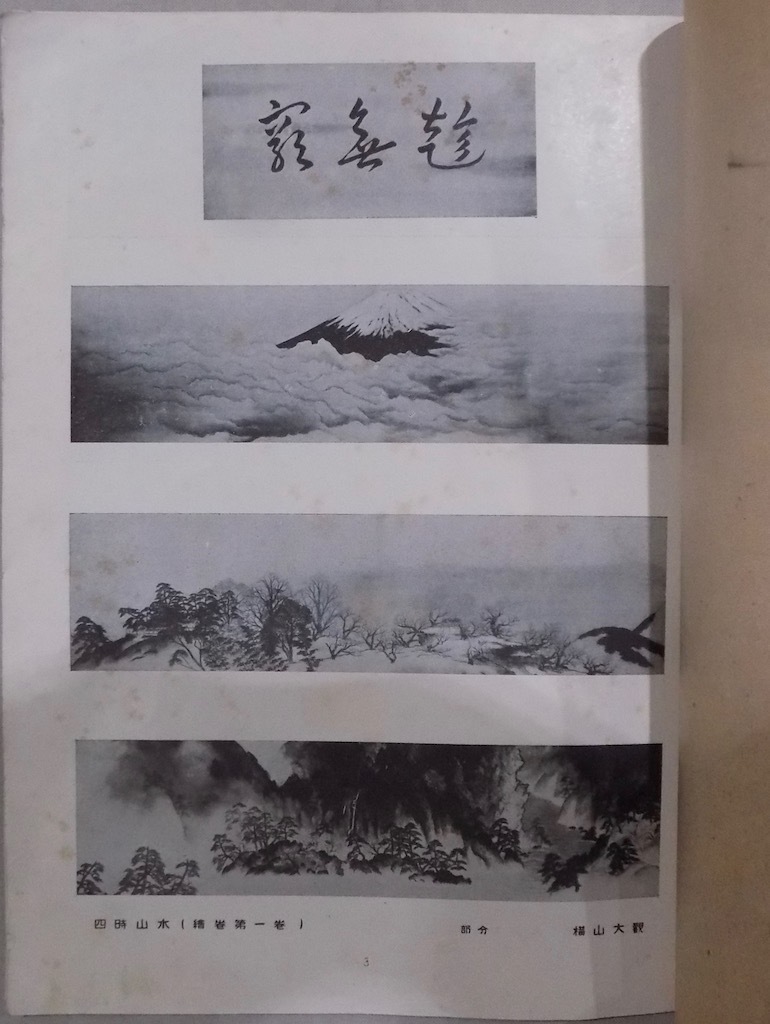 趣無窮
四時山水(繪卷第一卷) 部分 橫山大觀
3